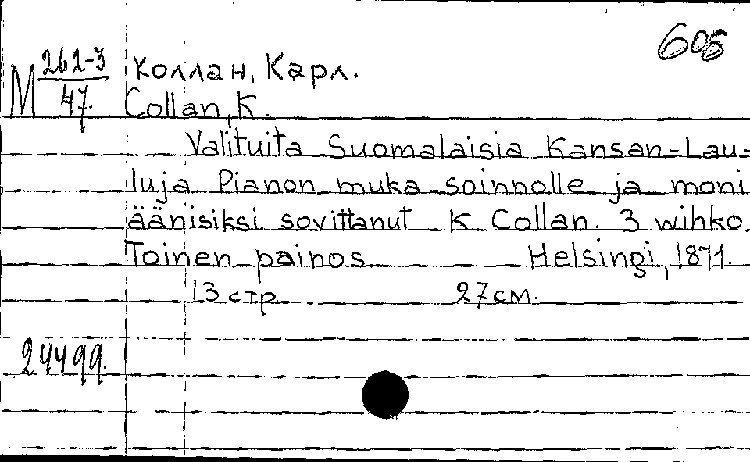 605
М 262-3/47. Коллан, Карл.
Collan, K.
Valituita Suomalaisia Kansan-Lau-
luja Pianon muka soinnolle ja moni
äänisiksi sovittanut K Collan. 3 wihko.
Toinen painos Helsingi, 1871.
13 стр. 27 см.
24499.